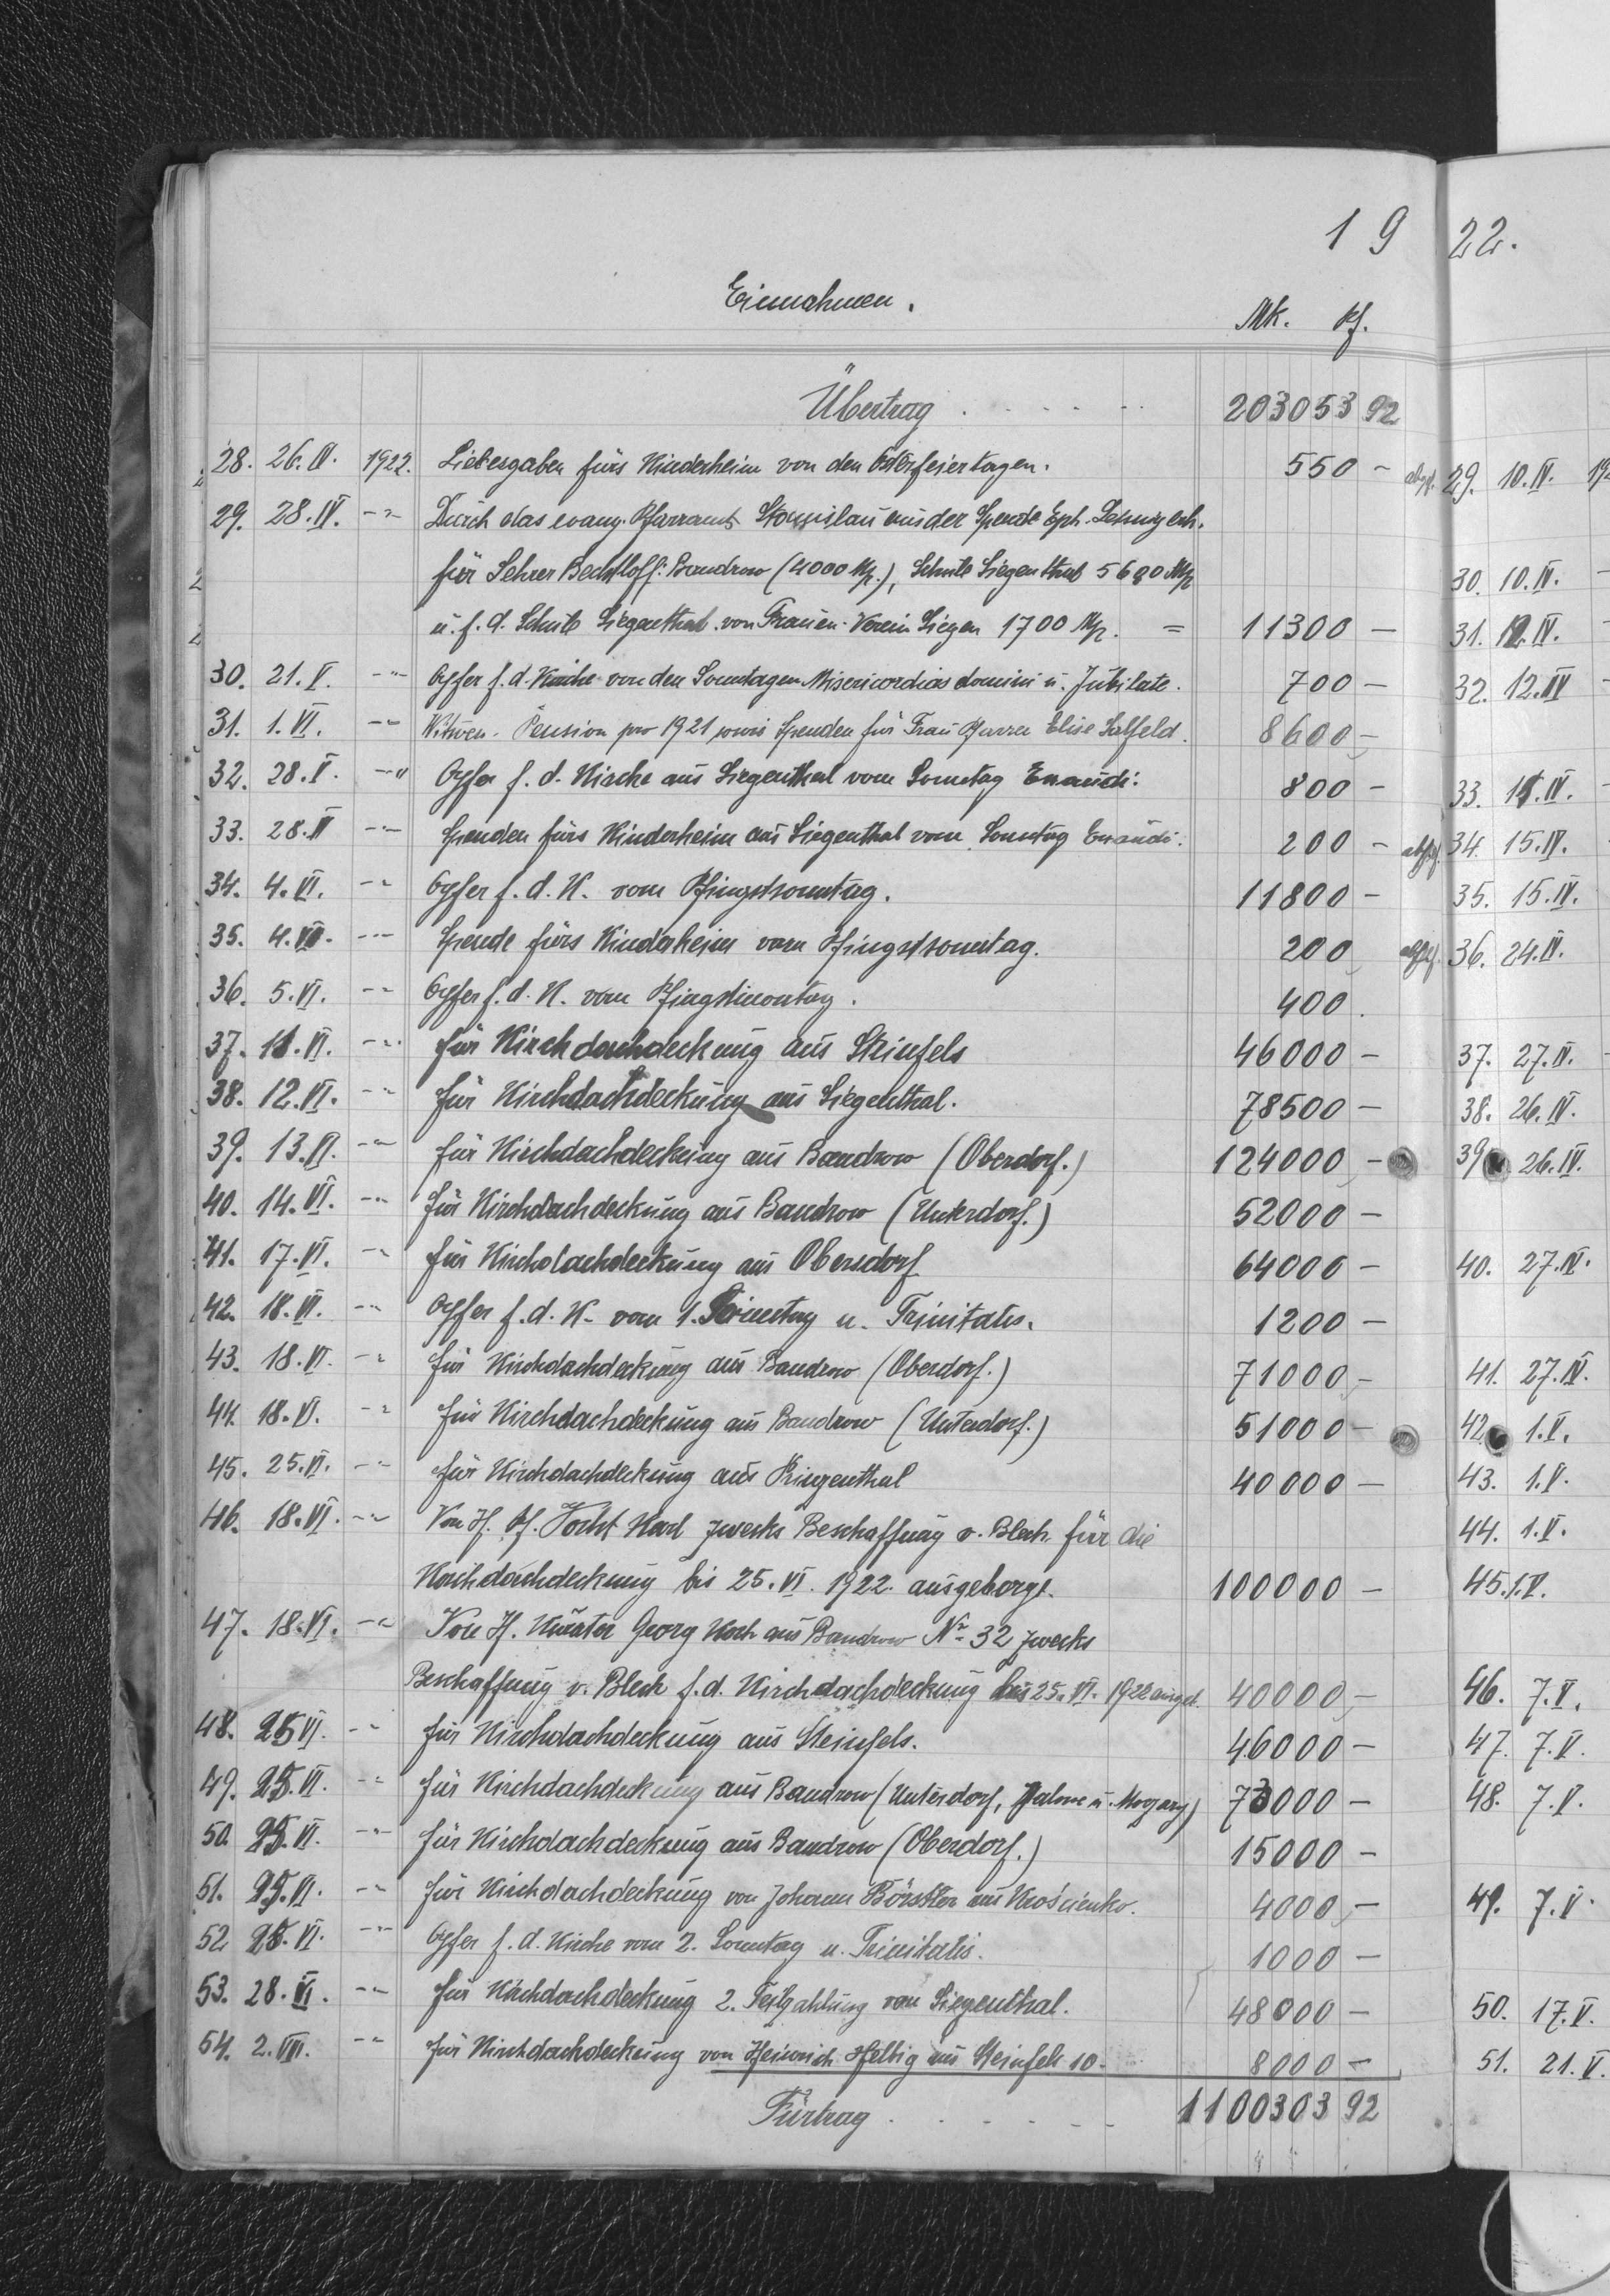 19 22.
Einnahmen. Mk. Pf.
Übertrag . . . . . 203053 92
28. 26. IV. 1922. Liebesgaben fürs Kinderheim von den Osterfeiertagen. 550 –
29. 28. IV. -"- Durch das evang. Pfarramt aus der Spende Eph.
für Lehrer Bechtloff. Bandrow (4000 Mp.), Schule Siegenthal 5600 Mp
u. f. d. Schule Siegenthal von Frauen-Verein Siegen 1700 Mp. = 11300 –
30. 21. V. -"- Opfer f. d. Kirche von den Sonntagen Misericordias domini u. Jubilate. 700 –
31. 1. VI. -"- Witwen-Pension pro 1921 sowie Spenden für Frau Pfarrer Elise Salfeld. 8600 –
32. 28. V. -"- Opfer f. d. Kirche aus Siegenthal vom Sonntag Exaudi. 800 –
33. 28. V -"- Spenden fürs Kinderheim aus Siegenthal vom Sonntag Exaudi. 200 –
34. 4. VI. -"- Opfer f. d. K. vom Pfingstsonntag. 11800 –
35. 4. VI. -"- Spende fürs Kinderheim vom Pfingstsonntag. 200
36. 5. VI. -"- Opfer f. d. K. vom Pfingstmontag. 400.
37. 11. VI. -"- für Kirchdachdeckung aus Steinfels 46000 –
38. 12. VI. -"- für Kirchdachdeckung aus Siegenthal. 78500 –
39. 13. VI. -"- für Kirchdachdeckung aus Bandrow (Oberdorf.) 124000 –
40. 14. VI. -"- für Kirchdachdeckung aus Bandrow (Unterdorf.) 52000 –
41. 17. VI. -"- für Kirchdachdeckung aus Obersdorf 64000 –
42. 18. VI. -"- Opfer f. d. K. vom 1. Sonntag n. Trinitatis. 1200 –
43. 18. VI. -"- für Kirchdachdeckung aus Bandrow (Oberdorf.) 71000 –
44. 18. VI. -"- für Kirchdachdeckung aus Bandrow (Unterdorf.) 51000 –
45. 25. VI. -"- für Kirchdachdeckung aus Prinzenthal 40000 –
46. 18. VI. -"- Von H. Pf. Karl zwecks Beschaffung v. Blech für die
Kirchdachdeckung bis 25. VI. 1922. ausgeborgt. 100000 –
47. 18. VI. -"- Von H. Kurator Georg Koch aus Bandrow Nr 32 zwecks
Beschaffung v. Blech f. d. Kirchdachdeckung bis 25. VI. 1922 40000 –
48. 25 VI. -"- für Kirchdachdeckung aus Steinfels. 46000 –
49. 25. VI. -"- für Kirchdachdeckung aus Bandrow (Unterdorf, u. ) 73000 –
50. 25. VI. -"- für Kirchdachdeckung aus Bandrow (Oberdorf.) 15000 –
51. 25. VI. -"- für Kirchdachdeckung von Johann Börstler aus Krościenko. 4000 –
52 25. VI. -"- Opfer f. d. Kirche vom 2. Sonntag n. Trinitatis. 1000 –
53. 28. VI. -"- für Kirchdachdeckung 2. Teilzahlung von Siegenthal. 48000 –
54. 2. VII. -"- für Kirchdachdeckung von Heinrich Helbig aus Steinfels 10. 8000 –
Fürtrag . . . . . 1100303 92
29. 10. IV. 19
30. 10. IV.
31. 12. IV.
32. 12. IV
33. 15. IV.
34. 15. IV.
35. 15. IV.
36. 24. IV.
37. 27. IV.
38. 26. IV.
39 26. IV.
40. 27. IV.
41. 27. IV.
42 1. V.
43. 1. V.
44. 1. V.
45. 1. V.
46. 7. V.
47. 7. V.
48. 7. V.
49. 7. V.
50. 17. V.
51. 21. V.